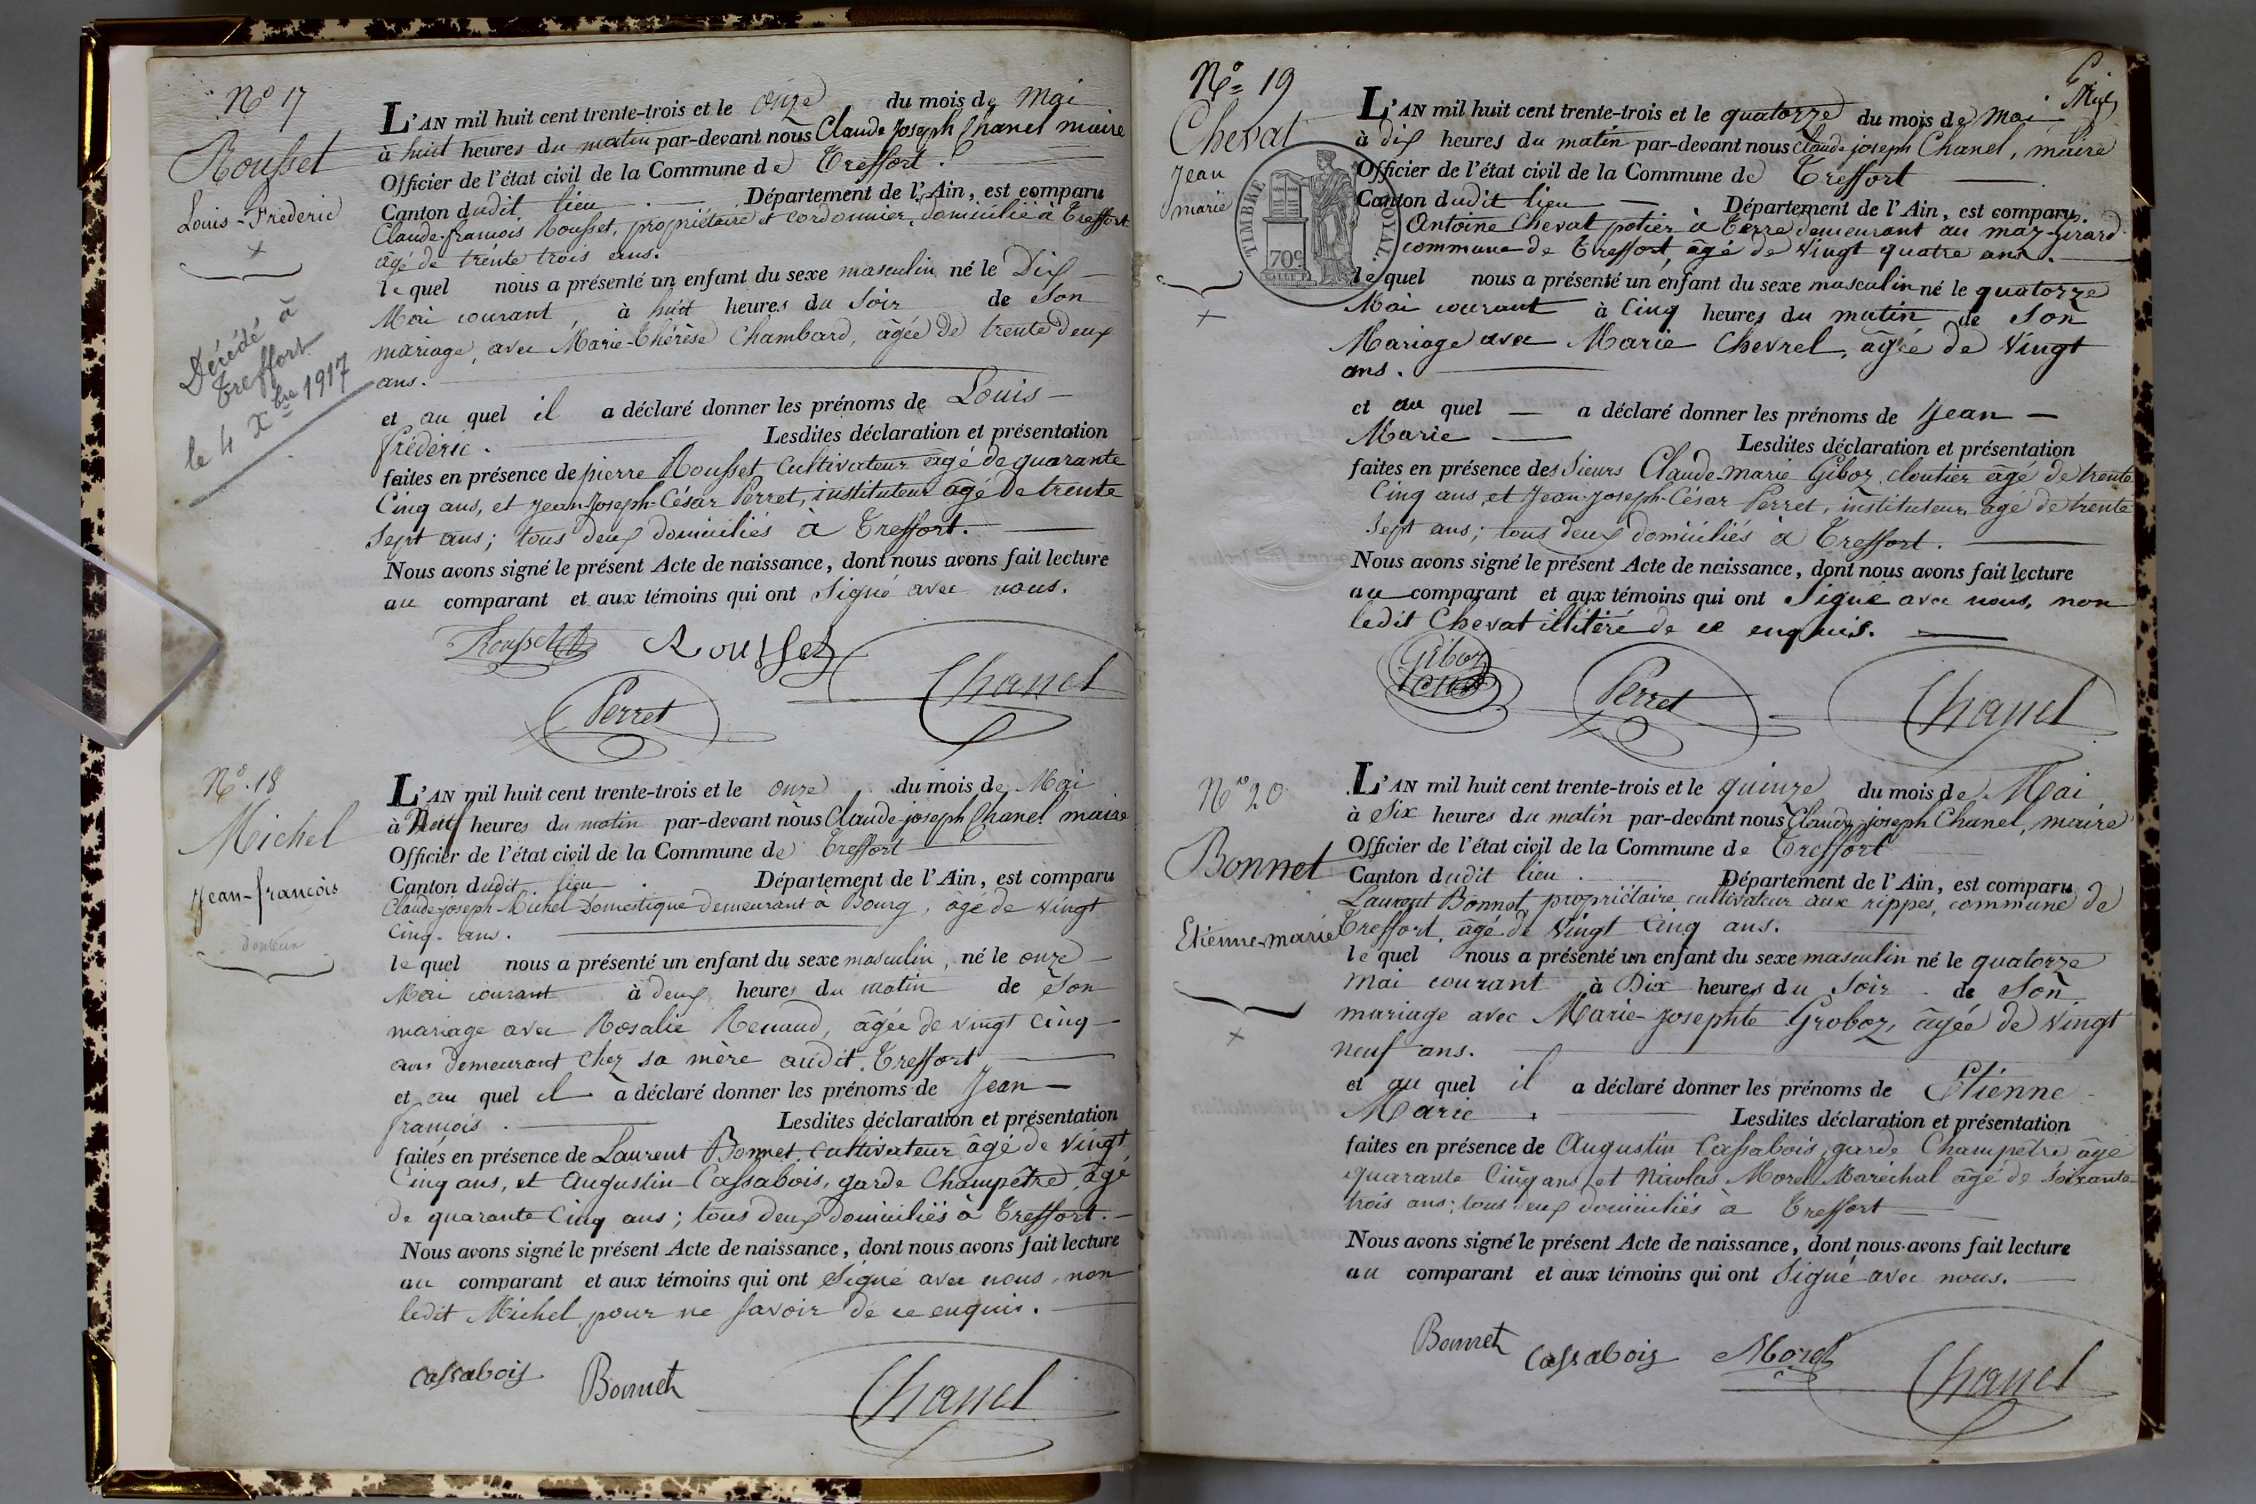 N° 17
Rousset
Louis-Fréderic
Décédé à
Treffort
le 4 Xbre 1917
L'AN mil huit cent trente-trois et le onze du mois de Mai
à huit heures du matin par-devant nous Claude Joseph Chanel maire
Officier de l'état civil de la Commune de Treffort.
Canton dudit lieu. Département de l'Ain, est comparu
Claude-françois Rousset, propriétaire et cordonnier, domicilié à Treffort
âgé de trente trois ans.
lequel nous a présenté un enfant du sexe masculin, né le Dix
Mai courant, à huit heures du Soir de Son
mariage, avec Marie-Thérèse Chambard, âgée de trente deux
ans.
et au quel il a déclaré donner les prénoms de Louis-
fréderic. Lesdites déclaration et présentation
faites en présence de pierre Rousset, Cultivateur âgé de quarante
Cinq ans, et Jean-Joseph-César Perret, instituteur âgé de trente
Sept ans; tous deux domiciliés à Treffort.
Nous avons signé le présent Acte de naissance, dont nous avons fait lecture
au comparant et aux témoins qui ont Signé avec nous.
Rousset Rousset
Perret Chanel
N° 18
Michel
Jean-françois
L'AN mil huit cent trente-trois et le onze du mois de Mai
à Neuf heures du matin par-devant nous Claude-joseph Chanel maire
Officier de l'état civil de la Commune de Treffort
Canton dudit lieu. Département de l'Ain, est comparu
Claude-joseph Michel Domestique demeurant à Bourg, âgé de vingt
Cinq ans.
lequel nous a présenté un enfant du sexe masculin, né le onze
Mai courant à deux heures du matin de Son
mariage avec Rosalie Renaud, âgée de vingt cinq
ans demeurant chez sa mère audit Treffort
et au quel il a déclaré donner les prénoms de Jean-
françois. Lesdites déclaration et présentation
faites en présence de Laurent Bonnet, cultivateur âgé de vingt
Cinq ans, et Augustin Cassabois, garde Champêtre, âgé
de quarante Cinq ans; tous deux domiciliés à Treffort.
Nous avons signé le présent Acte de naissance, dont nous avons fait lecture
au comparant et aux témoins qui ont Signé avec nous, non
ledit Michel, pour ne savoir de ce enquis.
Cassabois Bonnet Chanel
N° 19
Chevat
Jean
marie
TIMBRE ROYAL
70c
L'AN mil huit cent trente-trois et le quatorze du mois de Mai
à dix heures du matin par-devant nous Claude joseph Chanel, maire
Officier de l'état civil de la Commune de Treffort
Canton dudit lieu Département de l'Ain, est comparu
Antoine Chevat potier à terre demeurant au maz-girard
commune de Treffort, âgé de vingt quatre ans.
lequel nous a présenté un enfant du sexe masculin né le quatorze
Mai courant à Cinq heures du matin de Son
Mariage avec Marie Chevrel, âgée de vingt
ans.
et au quel — a déclaré donner les prénoms de Jean-
Marie Lesdites déclaration et présentation
faites en présence des Sieurs Claude-marie Giboz, cloutier âgé de trente
Cinq ans, et Jean-Joseph-César Perret, instituteur, âgé de trente
Sept ans; tous deux domiciliés à Treffort.
Nous avons signé le présent Acte de naissance, dont nous avons fait lecture
au comparant et aux témoins qui ont Signé avec nous, non
ledit Chevat illitéré de ce enquis.
Giboz Perret Chanel
N° 20
Bonnet
Etienne-marie
L'AN mil huit cent trente-trois et le quinze du mois de Mai
à Six heures du matin par-devant nous Claude joseph Chanel, maire
Officier de l'état civil de la Commune de Treffort
Canton dudit lieu. Département de l'Ain, est comparu
Laurent Bonnet, propriétaire cultivateur aux rippes, commune de
Treffort, âgé de vingt Cinq ans.
lequel nous a présenté un enfant du sexe masculin né le quatorze
mai courant à Dix heures du Soir de Son
mariage avec Marie-josephte Groboz, âgée de vingt
neuf ans.
et au quel il a déclaré donner les prénoms de Etienne-
Marie. Lesdites déclaration et présentation
faites en présence de Augustin Cassabois, garde Champêtre âgé
quarante Cinq ans, et Nicolas Morel Maréchal âgé de Soixante
trois ans; tous deux domiciliés à Treffort
Nous avons signé le présent Acte de naissance, dont nous avons fait lecture
au comparant et aux témoins qui ont Signé avec nous.
Bonnet Cassabois Morel Chanel